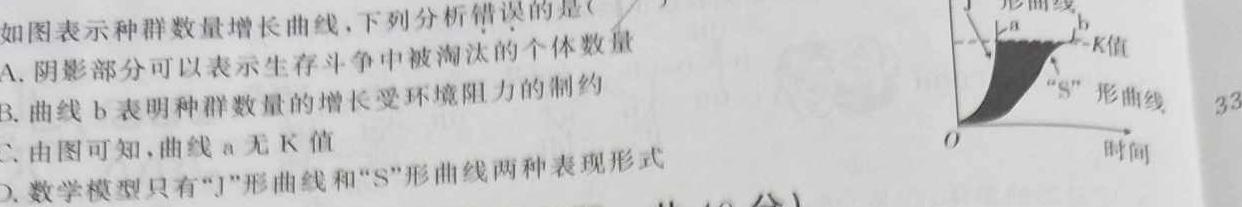 如图表示种群数量增长曲线,下列分析错误的是(
A. 阴影部分可以表示生存斗争中被淘汰的个体数量
B. 曲线 b 表明种群数量的增长受环境阻力的制约
C. 由图可知,曲线 a 无 K 值
D. 数学模型只有“J”形曲线和“S”形曲线两种表现形式
形曲线
a
b
K值
“S” 形曲线
O
时间
33